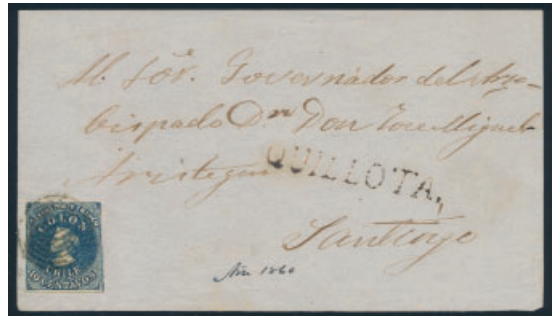 Al Sōr. Governador del Arzo-
bispado Dn Don Jose Miguel
Aristegui
QUILLOTA.
Santiago
COLON
CHILE
10 CENTAVOS
Año 1860